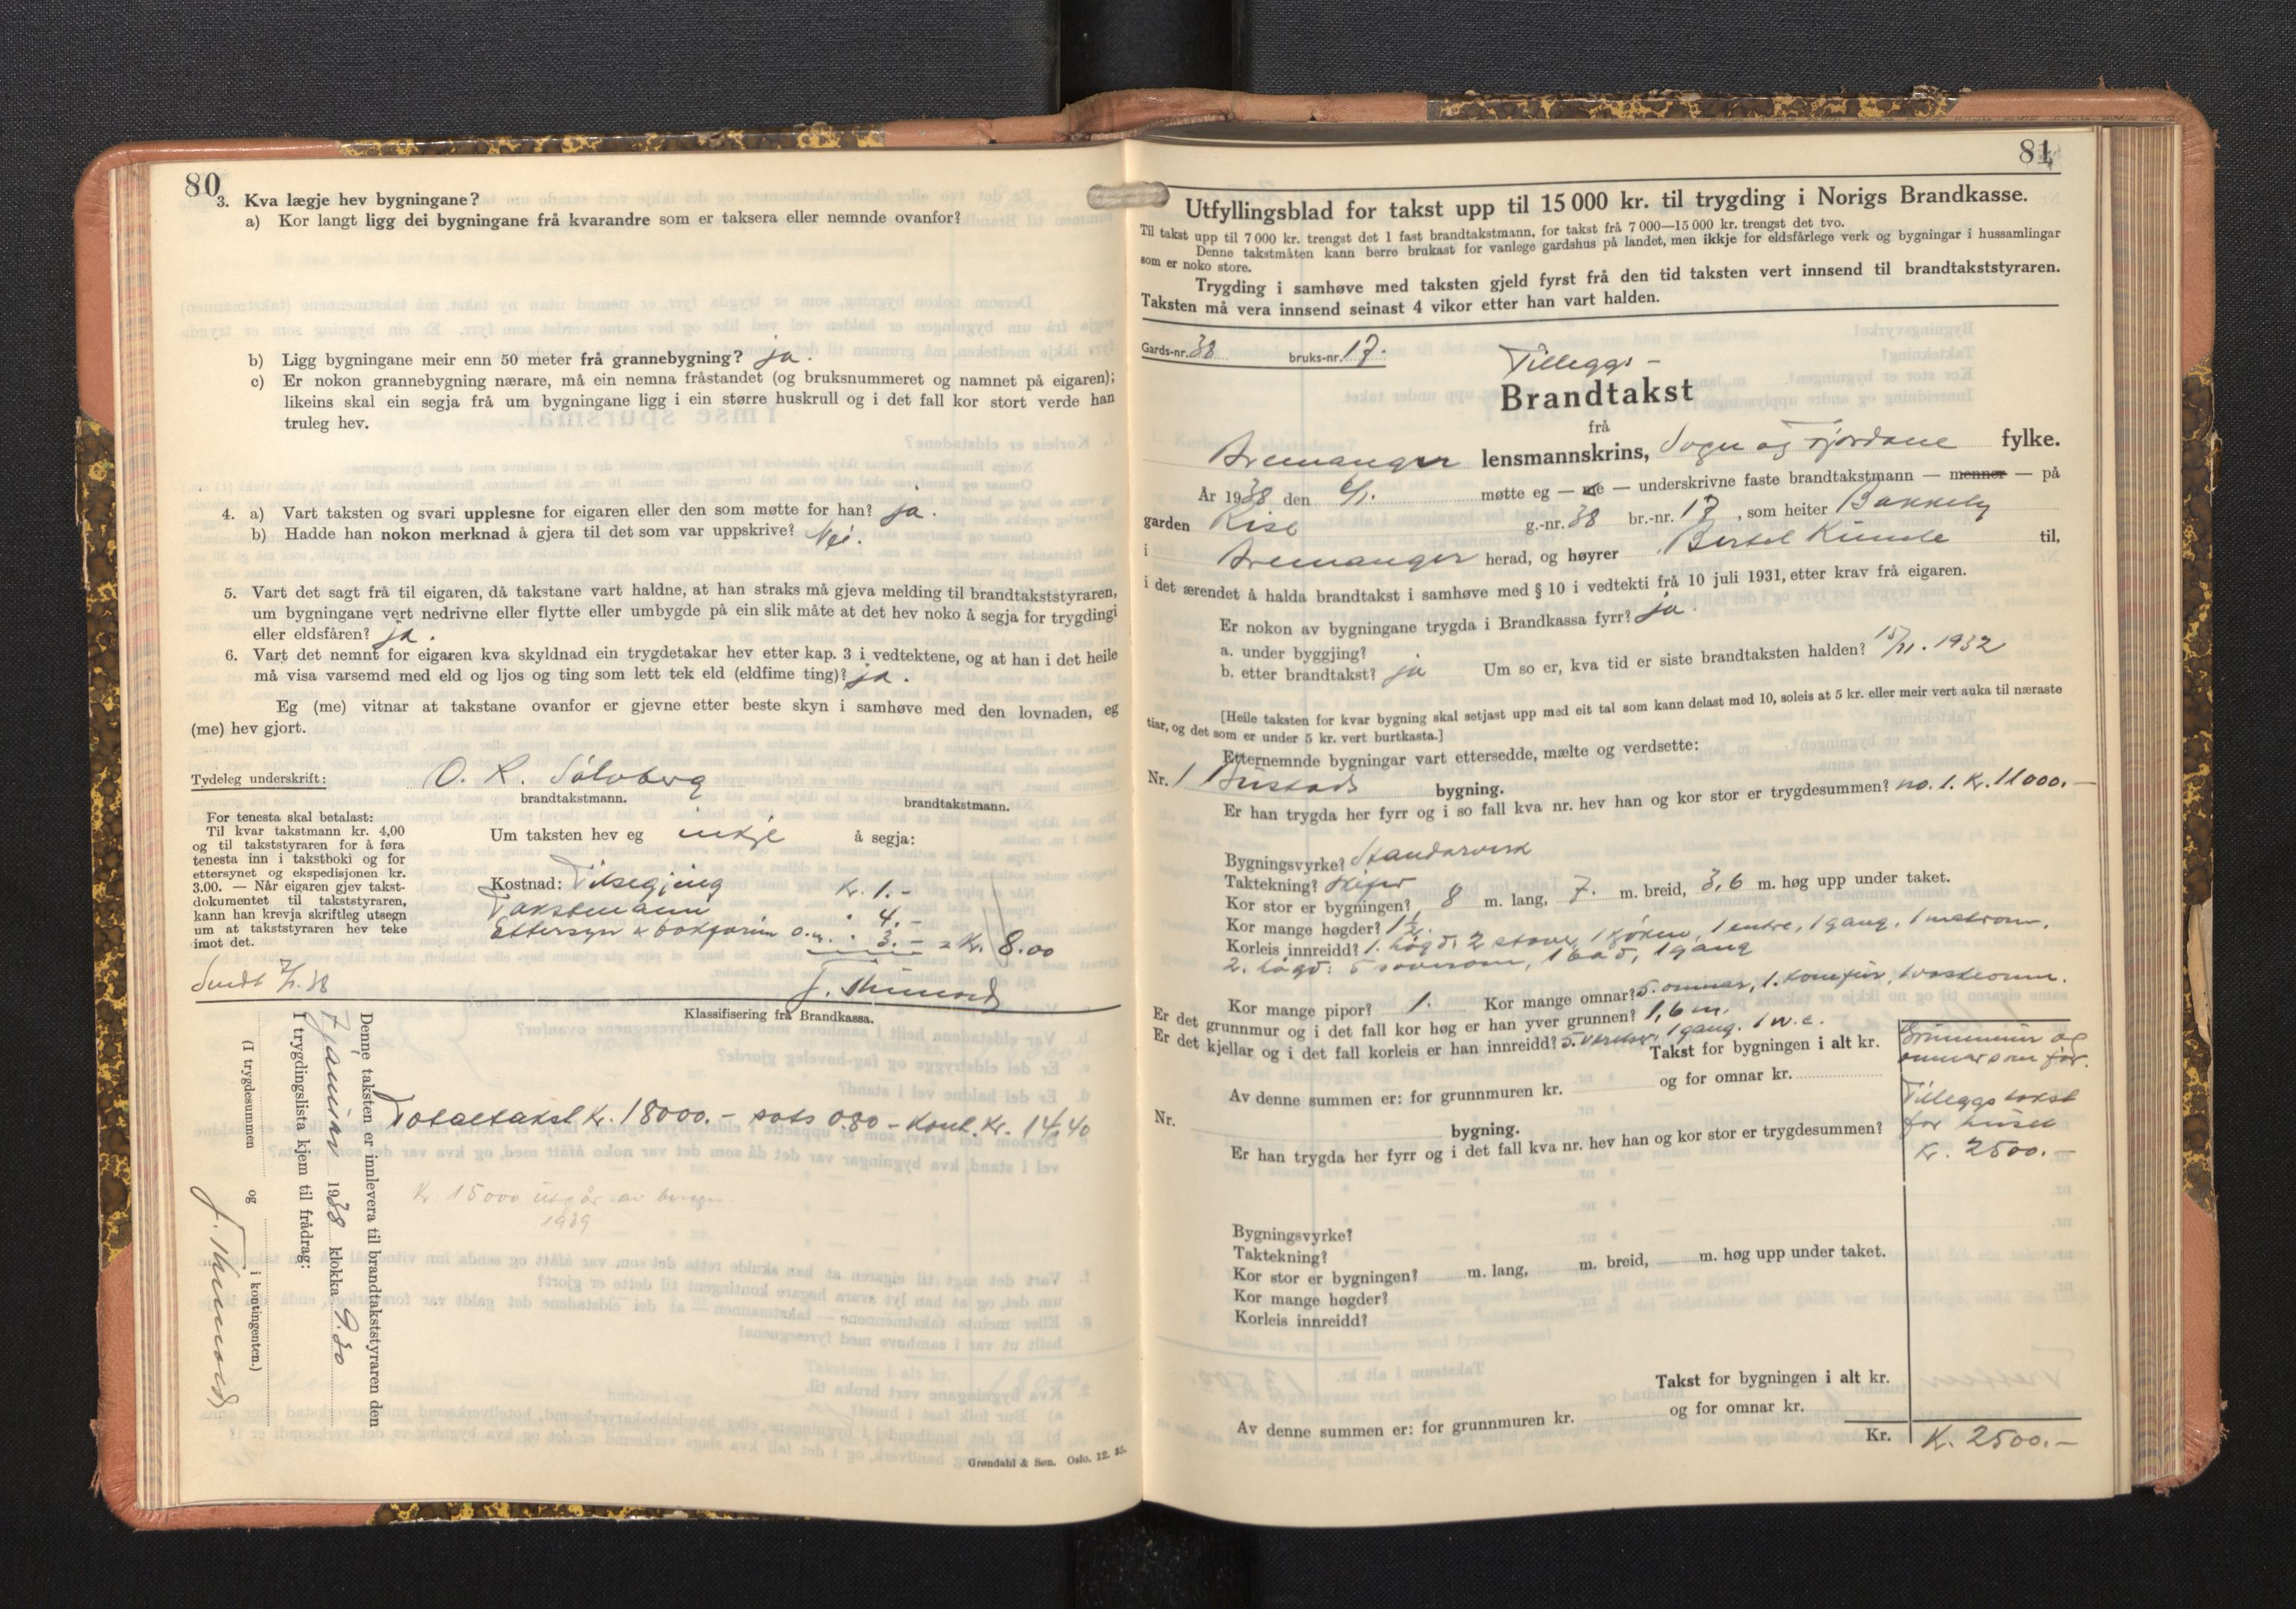 80
3. Kva lægje hev bygningane?
a) Kor langt ligg dei bygningane frå kvarandre som er taksera eller nemnde ovanfor?
b) Ligg bygningane meir enn 50 meter frå grannebygning? ja.
c) Er nokon grannebygning nærare, må ein nemna fråstandet (og bruksnummeret og namnet på eigaren);
likeins skal ein segja frå um bygningane ligg i ein større huskrull og i det fall kor stort verde han
truleg hev.
4. a) Vart taksten og svari upplesne for eigaren eller den som møtte for han? ja.
b) Hadde han nokon merknad å gjera til det som var uppskrive? Nei.
5. Vart det sagt frå til eigaren, då takstane vart haldne, at han straks må gjeva melding til brandtakststyraren,
um bygningane vert nedrivne eller flytte eller umbygde på ein slik måte at det hev noko å segja for trygdingi
eller eldsfåren? ja.
6. Vart det nemnt for eigaren kva skyldnad ein trygdetakar hev etter kap. 3 i vedtektene, og at han i det heile
må visa varsemd med eld og ljos og ting som lett tek eld (eldfime ting)? ja.
Eg (me) vitnar at takstane ovanfor er gjevne etter beste skyn i samhøve med den lovnaden, eg
(me) hev gjort.
Tydeleg underskrift: O. R. Sölvberg
brandtakstmann. brandtakstmann.
For tenesta skal betalast:
Til kvar takstmann kr. 4,00
og til takststyraren for å føra
tenesta inn i takstboki og for
ettersynet og ekspedisjonen kr.
3.00. — Når eigaren gjev takst-
dokumentet til takststyraren,
kann han krevja skriftleg utsegn
um at takststyraren hev teke
imot det.
Um taksten hev eg inkje å segja:
Kostnad: Tilsegjing Kr. 1.-
Takstmann " 4.-
Ettersyn & bokføring o.a. " 3.- = Kr. 8.00
Sendt 7/1.38
Klassifisering frå Brandkassa.
Denne taksten er innlevera til brandtakststyraren den
7 januar 1938 klokka 9.30
I trygdingslista kjem til frådrag:
(I trygdesummen og i kontingenten.)
Totaltakst Kr. 18000.- sats 0.80 - Kont. Kr. 14,40
Kr. 15000 utgår av
1939
Grøndahl & Søn. Oslo. 12. 35.
81
Utfyllingsblad for takst upp til 15 000 kr. til trygding i Norigs Brandkasse.
Til takst upp til 7 000 kr. trengst det 1 fast brandtakstmann, for takst frå 7 000—15 000 kr. trengst det tvo.
Denne takstmåten kann berre brukast for vanlege gardshus på landet, men ikkje for eldsfårlege verk og bygningar i hussamlingar
som er noko store.
Trygding i samhøve med taksten gjeld fyrst frå den tid taksten vert innsend til brandtakststyraren.
Taksten må vera innsend seinast 4 vikor etter han vart halden.
Gards-nr. 38 bruks-nr. 17.
Tilleggs -
Brandtakst
frå
Bremanger lensmannskrins, Sogn og Fjordane fylke.
År 1938 den 6/1. møtte eg — me — underskrivne faste brandtakstmann — menner — på
garden Rise g.-nr. 38 br.-nr. 17, som heiter Bakkely
i Bremanger herad, og høyrer Bertel til,
i det ærendet å halda brandtakst i samhøve med § 10 i vedtekti frå 10 juli 1931, etter krav frå eigaren.
Er nokon av bygningane trygda i Brandkassa fyrr? ja.
a. under byggjing?
b. etter brandtakst? ja Um so er, kva tid er siste brandtaksten halden? 15/11. 1932
[Heile taksten for kvar bygning skal setjast upp med eit tal som kann delast med 10, soleis at 5 kr. eller meir vert auka til næraste
tiar, og det som er under 5 kr. vert burtkasta.]
Etternemnde bygningar vart ettersedde, mælte og verdsette:
Nr. 1 Bustads bygning.
Er han trygda her fyrr og i so fall kva nr. hev han og kor stor er trygdesummen? no. 1. Kr. 11000.-
Bygningsvyrke? Standarverk
Taktekning? Skifer
Kor stor er bygningen? 8 m. lang, 7. m. breid, 3,6 m. høg upp under taket.
Kor mange høgder? 1½.
Korleis innreidd? 1. høgd: 2 stover, 1 kjøken, 1 entre, 1 gang, 1 matrom.
2. høgd: 5 soverom, 1 bad, 1 gang
Kor mange pipor? 1. Kor mange omnar? 5. omnar, 1. komfur, 1 vaskeomn.
Er det grunnmur og i det fall kor høg er han yver grunnen? 1,6 m.
Er det kjellar og i det fall korleis er han innreidd? 1 gang. 1 w.c.
Takst for bygningen i alt kr.
Grunnmur og
omnar som før.
Av denne summen er: for grunnmuren kr. og for omnar kr.
Tilleggstakst
for huset
Kr. 2500.-
Nr. bygning.
Er han trygda her fyrr og i det fall kva nr. hev han og kor stor er trygdesummen?
Bygningsvyrke?
Taktekning?
Kor stor er bygningen? m. lang, m. breid, m. høg upp under taket.
Kor mange høgder?
Korleis innreidd?
Takst for bygningen i alt kr.
Av denne summen er: for grunnmuren kr. og for omnar kr.
Kr. K. 2500.-